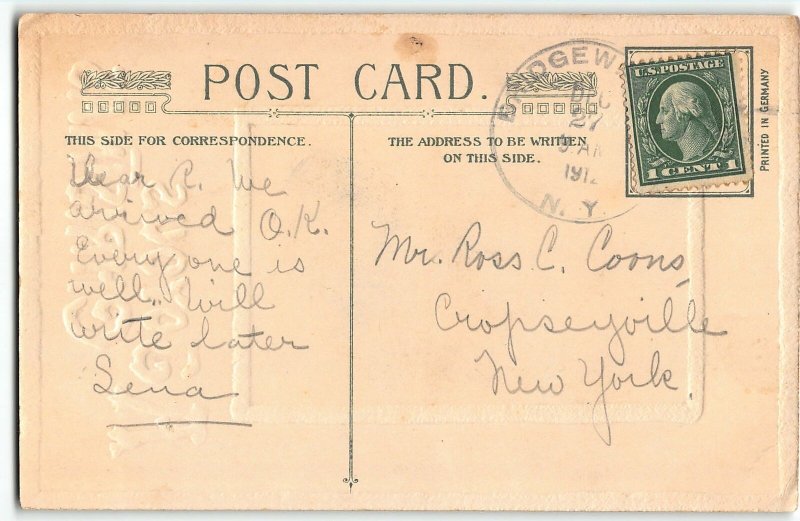 POST CARD.
THIS SIDE FOR CORRESPONDENCE.
THE ADDRESS TO BE WRITTEN
ON THIS SIDE.
PRINTED IN GERMANY
U.S. POSTAGE
1 CENT 1
27
N. Y.
Dear R. We
arrived O.K.
Every one is
well. Will
write later
Lena
Mr. Ross C. Coons
Cropseyville
New York.